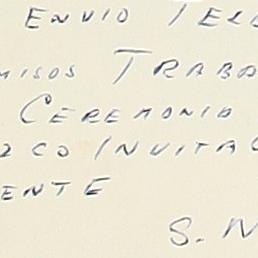 ENVIO TEL
MISOS TRABA
CEREMONIA
CO INVITA
ENTE
S. N